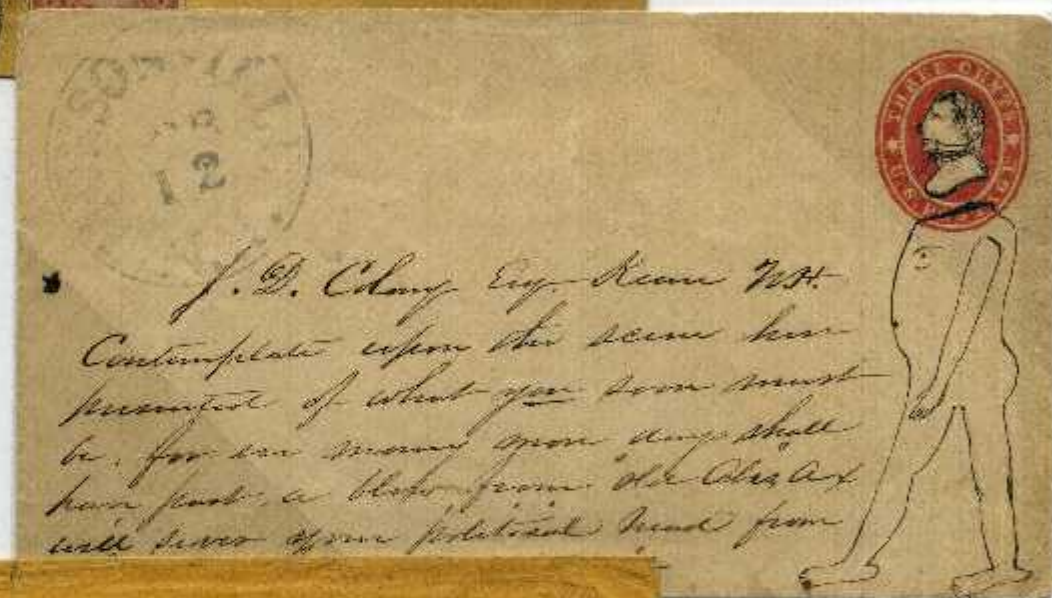 12
THREE CENTS
U.S. POSTAGE
J. D. Colony Esq. Keene N.H.
Contemplate upon this scene here
presented of what you soon must
be, for ere many more days shall
have past, a blow from old Abes Ax
will sever your political head from